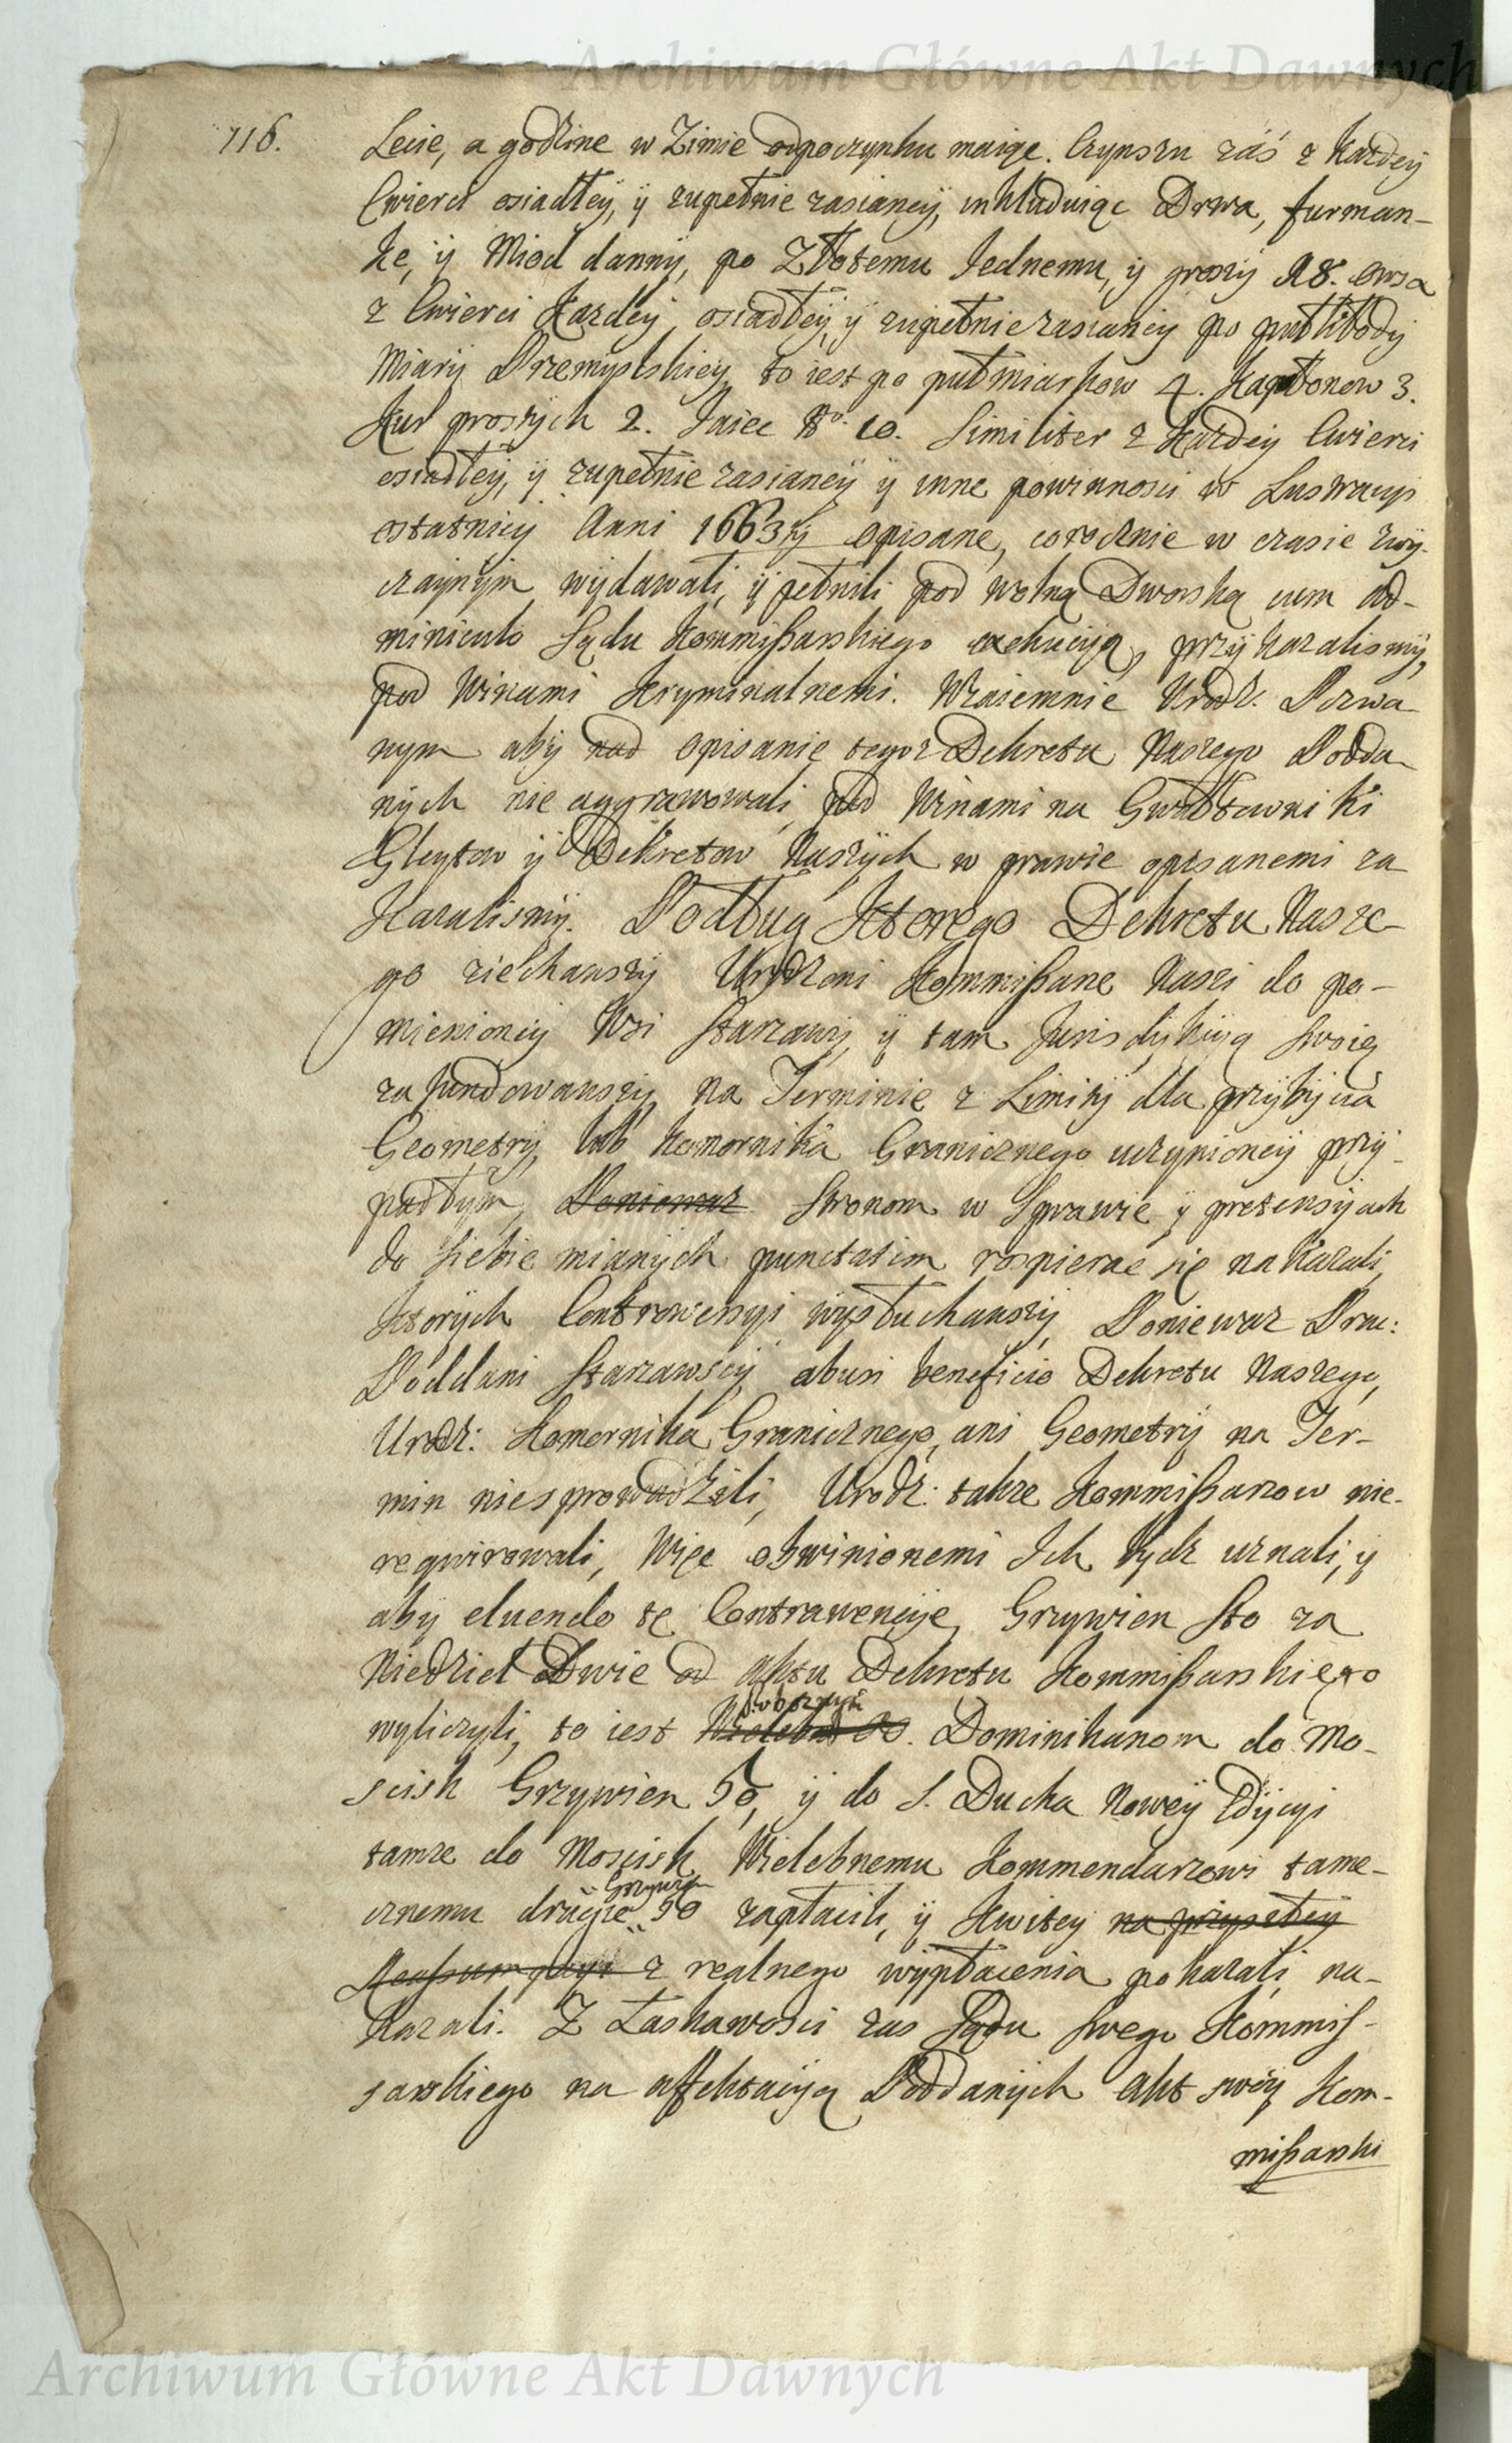 Archiwum Główne Akt Dawnych
116.
Lecie, a godzine w Zimie odpoczynku maiąc. Czynszu záś z Każdey
Cwierci osiadłey, ÿ zupełnie zasianeÿ, inkluduiąc Drwa, furman-
kę, ÿ Miod dannÿ, po Złotemu Jednemu, ÿ groszÿ 18. Owsa
z Cwierci Każdeÿ osiadłeÿ, ÿ zupełnie zasianeÿ po puł
Miarÿ Przemyslskieÿ, to iest po pułmiarkow 4. Kapłonow 3.
Kur prostÿch 2. Jaiec No. 10. Similiter z Każdeÿ Cwierci
osiadłeÿ, ÿ zupełnie zasianeÿ ÿ inne powinnosci w Lustracyi
ostatnieÿ Anni 1663tÿ opisane, corocznie w czasie zwÿ-
czaÿnÿm wÿdawali, ÿ pełnili pod wolną Dworską cum ad-
miniculo Sądu Kommißarskiego exekucÿą, przÿkazalismÿ,
pod Winami Kryminalnemi. Wzaiemnie Urodz. Pozwa-
nym abÿ nad opisanie tegoż Dekretu Naszego Podda-
nÿch nie aggrawowali, pod Winami na Gwałtowniki
Gleÿtow ÿ Dekretow Naszÿch w prawie opisanemi za-
Kazalismÿ. Podług Ktorego Dekretu Nasze-
go ziechawszÿ Urodzeni Kommißarze Nasi do po-
mienioneÿ Wsi Starzawÿ, ÿ tam Jurisdÿkcÿą swoię
zafundowawszÿ, na Terminie z Limitÿ dla przÿbÿcia
Geometrÿ, lub Komornika Granicznego uczÿnioneÿ przÿ-
padłÿm, Poniewaz Stronom w Sprawie ÿ pretensÿach
do siebie mianÿch punctatim rospierac się nakazali,
Ktorÿch Controwersyi wysłuchawszÿ, Poniewaz Prac:
Poddani Starzawscÿ, abusi beneficio Dekretu Naszego,
Urodz: Komornika Granicznego, ani Geometrÿ na Ter-
min niesprowadzili, Urodz: takze Kommißarzow nie-
reqwirowali, Więc obwinionemi Ich bÿdz uznali, ÿ
abÿ eluendo tę Contrawencÿę, Grzywien Sto za
Niedziel Dwie od aktu Dekretu Kommißarskiego
wyliczyli, to iest Wielebn OO. Dominikanom do Mo-
scisk Grzywien 50, ÿ do S. Ducha Noweÿ Edÿcyi
tamze do Moscisk Wielebnemu Kommendarzowi tame-
Grzywien
cznemu drugie 50 zapłacili, ÿ Kwitÿ na przyszłeÿ
z realnego wÿpłacenia pokazali, na-
Kazali. Z Łaskawosci zas Sądu Swego Kommis-
sarskiego na affektacÿą Poddanÿch akt swóÿ Kom-
mißarski
Archiwum Główne Akt Dawnych